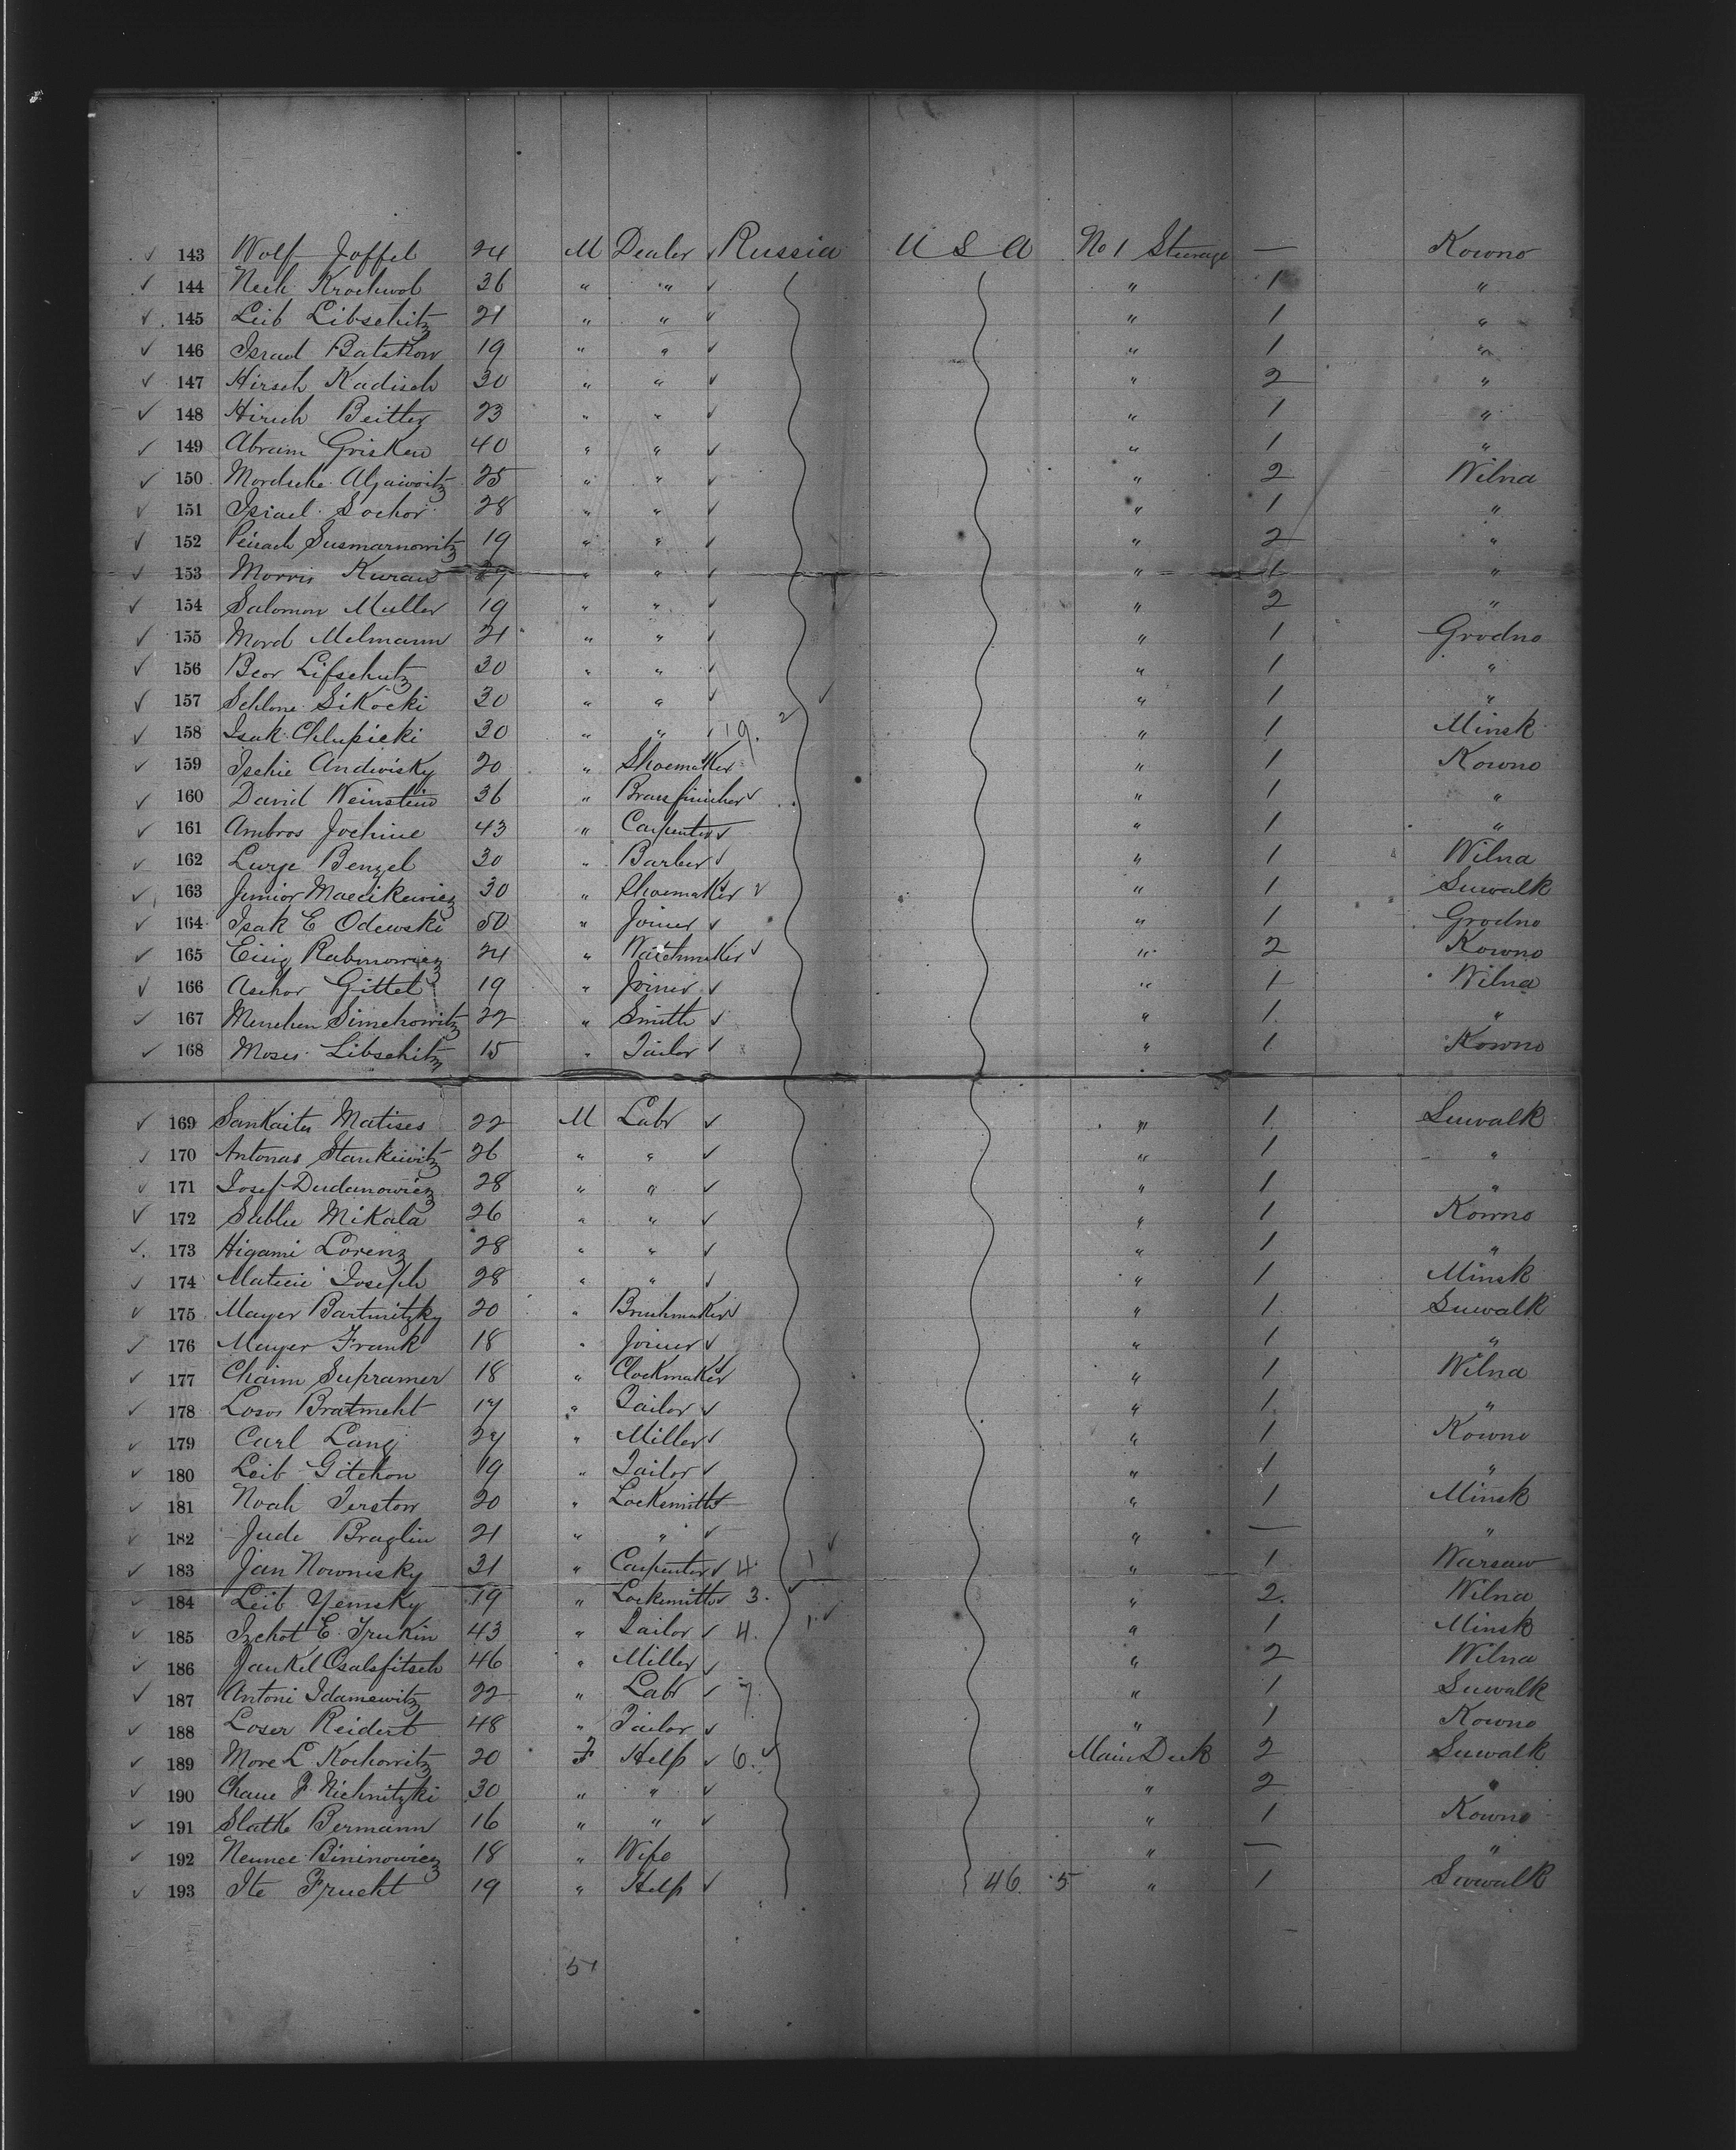 143 Wolf Joffel 24 M Dealer Russia U S A No 1 Steerage — Kowno
144 Nech Krochwob 36 " " " 1 "
145 Leib Libschitz 21 " " " 1 "
146 Israel Batzkow 19 " " " 1 "
147 Hirsch Kadisch 30 " " " 2 "
148 Hirsch Beitler 23 " " " 1 "
149 Abram Grisken 40 " " " 1 "
150 Mordsche Aljaiwoitz 25 " " " 2 Wilna
151 Israel Sochor 28 " " " 1 "
152 Peisach Susmarnowitz 19 " " " 2 "
153 Morris Kuraw " " " 1 "
154 Salomon Muller 19 " " " 2 "
155 Mord Melmann 21 " " " 1 Grodno
156 Beor Lifschutz 30 " " " 1 "
157 Schlone Sikocki 30 " " " 1 "
158 Isak Chlupicki 30 " " 19. 2 " 1 Minsk
159 Ischie Andwisky 20 " Shoemaker " 1 Kowno
160 David Weinstein 36 " Brassfinisher " 1 "
161 Ambros Jochine 43 " Carpenter " 1 "
162 Lurje Benzel 30 " Barber " 1 Wilna
163 Junior Maecikewicz 30 " Shoemaker " 1 Suwalk
164 Isak E Odewski 50 " Joiner " 1 Grodno
165 Eisig Rabinowicz 24 " Watchmaker " 2 Kowno
166 Aschor Gittel 19 " Joiner " 1 Wilna
167 Menchen Simchowitz 22 " Smith " 1 "
168 Moses Libschitz 15 " Tailor " 1 Kowno
169 Sankaites Matises 22 M Labr " 1 Suwalk
170 Antonas Stankewitz 26 " " " 1 "
171 Josef Dudanowicz 28 " " " 1 "
172 Sablie Mikala 26 " " " 1 Kowno
173 Higami Lorenz 28 " " " 1 "
174 Joseph 28 " " " 1 Minsk
175 Mayer Bartnitzky 20 " Brushmaker " 1 Suwalk
176 Mayer Frank 18 " Joiner " 1 "
177 Chaim Supramer 18 " Clockmaker " 1 Wilna
178 Losor Bratmeht 17 " Tailor " 1 "
179 Carl Lang 27 " Miller " 1 Kowno
180 Leib Gitchon 19 " Tailor " 1 "
181 Noah Terstow 20 " Locksmith " 1 Minsk
182 Jude Braglin 21 " " " — "
183 Jan Nownisky 31 " Carpenter 4 1 " 1 Warsaw
184 Leib Yemsky 19 " Locksmith 3. " 2 Wilna
185 Izchot E Trukin 43 " Tailor 4. 1 " 1 Minsk
186 Jankel Osalsfitsch 46 " Miller " 2 Wilna
187 Antoni Idamewitz 22 " Labr 7. " 1 Suwalk
188 Loser Reidert 48 " Tailor " 1 Kowno
189 More L Kochowitz 20 F Help 6. Main Deck 2 Suwalk
190 Chane F Nichnitzki 30 " " " 2 "
191 Slatke Bermann 16 " " " 1 Kowno
192 Neunee Bininowicz 18 " Wife " — "
193 Ite Frucht 19 " Help 46. 5 " 1 Suwalk
51